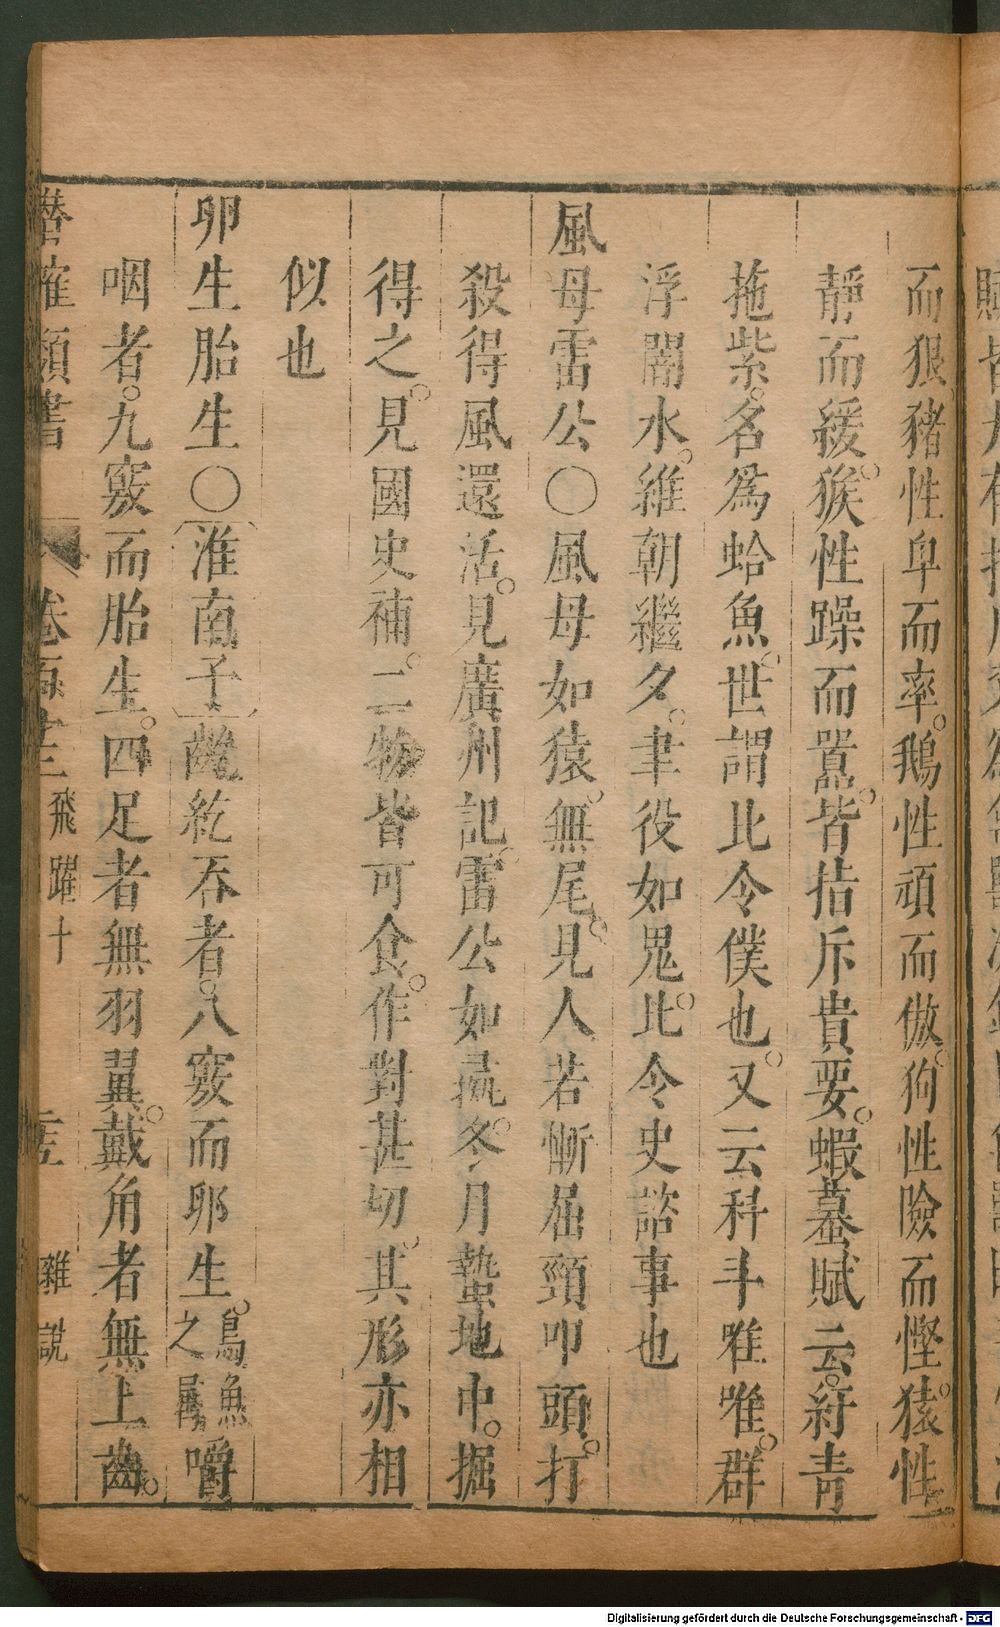 而狠猪性卑而率鵝性頑而傲狗性險而慳猿性
靜而緩猴性躁而嚚皆指斥貴要蝦蟇賦云紆青
拖紫名爲蛤魚世謂比令僕也又云科斗唯唯群
浮闇水維朝繼夕聿役如鬼比令史諮事也
風母雷公〇風母如猿無尾見人若慚屈頸叩頭打
殺得風還活見廣州記雷公如彘冬月蟄地中掘
得之見國史補二物皆可食作對甚切其形亦相
似也
卵生胎生〇淮南子齕吞者八竅而卵生鳥魚之屬嚼
咽者九竅而胎生四足者無羽翼戴角者無上齒
潛確類書 卷 飛躍十 雜說